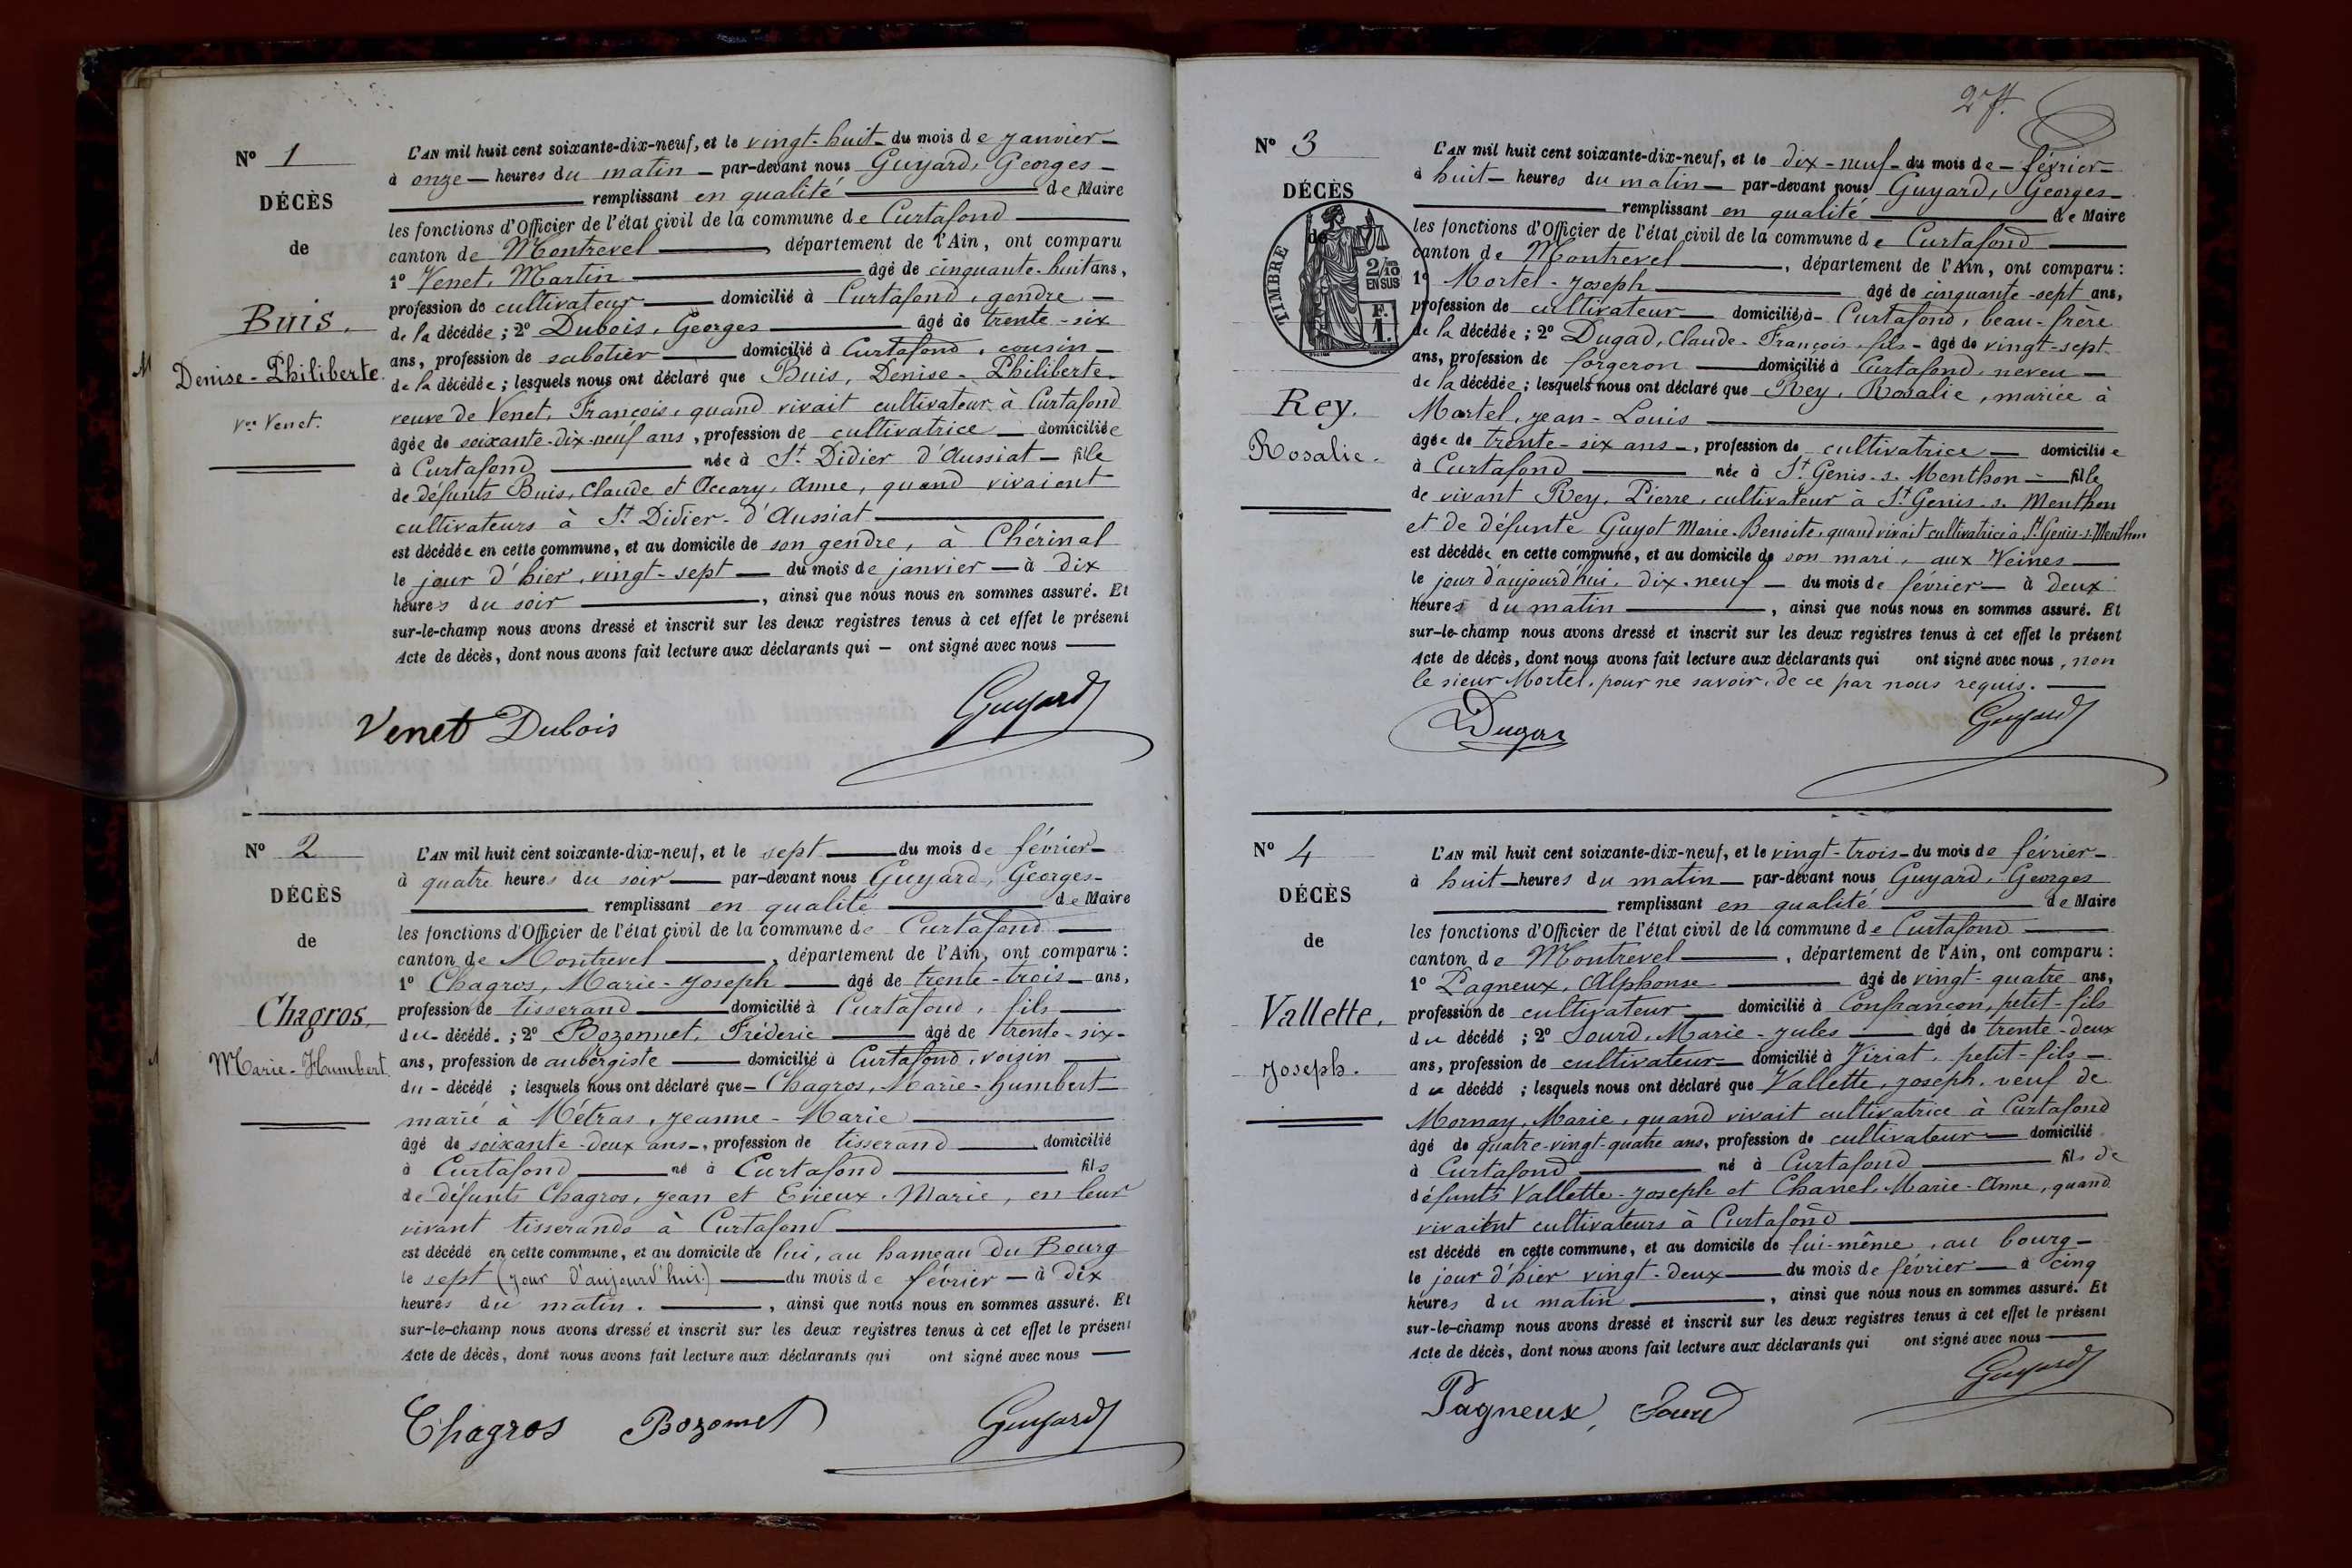 N° 1
DÉCÈS
de
Buis,
Denise-Philiberte.
M
Vve Venet.
L'AN mil huit cent soixante-dix-neuf, et le vingt-huit du mois de janvier
à onze heures du matin par-devant nous Guyard, Georges
remplissant en qualité de Maire
les fonctions d'Officier de l'état civil de la commune de Curtafond
canton de Montrevel, département de l'Ain, ont comparu
1° Venet, Martin âgé de cinquante-huit ans,
profession de cultivateur domicilié à Curtafond, gendre
de la décédée ; 2° Dubois, Georges âgé de trente-six
ans, profession de sabotier domicilié à Curtafond, cousin
de la décédée ; lesquels nous ont déclaré que Buis, Denise-Philiberte
veuve de Venet, François, quand vivait cultivateur à Curtafond
âgée de soixante-dix-neuf ans, profession de cultivatrice domiciliée
à Curtafond née à St Didier d'Aussiat fille
de défunts Buis, Claude et Accary, Anne, quand vivaient
cultivateurs à St Didier-d'Aussiat
est décédée en cette commune, et au domicile de son gendre, à Chérinal
le jour d'hier, vingt-sept du mois de janvier à dix
heures du soir, ainsi que nous nous en sommes assuré. Et
sur-le-champ nous avons dressé et inscrit sur les deux registres tenus à cet effet le présent
Acte de décès, dont nous avons fait lecture aux déclarants qui ont signé avec nous
Venet Dubois Guyard
N° 2
DÉCÈS
de
Chagros,
Marie-Humbert.
L'AN mil huit cent soixante-dix-neuf, et le sept du mois de février
à quatre heures du soir par-devant nous Guyard, Georges
remplissant en qualité de Maire
les fonctions d'Officier de l'état civil de la commune de Curtafond
canton de Montrevel, département de l'Ain, ont comparu :
1° Chagros, Marie-Joseph âgé de trente-trois ans,
profession de tisserand domicilié à Curtafond, fils
du décédé. ; 2° Bozonnet, Fréderic âgé de trente-six
ans, profession de aubergiste domicilié à Curtafond, voisin
du décédé ; lesquels nous ont déclaré que Chagros, Marie-humbert
marié à Métras, Jeanne-Marie
âgé de soixante-deux ans, profession de tisserand domicilié
à Curtafond né à Curtafond fils
de défunts Chagros, Jean et Erieux, Marie, en leur
vivant tisserands à Curtafond
est décédé en cette commune, et au domicile de lui, au hameau Du Bourg
le sept (jour d'aujourd'hui) du mois de février à dix
heures du matin., ainsi que nous nous en sommes assuré. Et
sur-le-champ nous avons dressé et inscrit sur les deux registres tenus à cet effet le présent
Acte de décès, dont nous avons fait lecture aux déclarants qui ont signé avec nous
Chagros Bozonnet Guyard
2e ft.
N° 3
DÉCÈS
de
TIMBRE
2/10
EN SUS
F.
1.
Rey.
Rosalie.
L'AN mil huit cent soixante-dix-neuf, et le dix-neuf du mois de février
à huit heures du matin par-devant nous Guyard, Georges
remplissant en qualité de Maire
les fonctions d'Officier de l'état civil de la commune de Curtafond
canton de Montrevel, département de l'Ain, ont comparu :
1° Mortel-Joseph âgé de cinquante-sept ans,
profession de cultivateur domicilié à Curtafond, beau-frère
de la décédée ; 2° Dugad, Claude-François, fils âgé de vingt-sept
ans, profession de forgeron domicilié à Curtafond, neveu
de la décédée ; lesquels nous ont déclaré que Rey, Rosalie, mariée à
Mortel, Jean-Louis
âgée de trente-six ans, profession de cultivatrice domiciliée
à Curtafond née à St Genis-s-Menthon fille
de vivant Rey, Pierre, cultivateur à St Genis-s-Menthon
et de défunte Guyot Marie-Benoite, quand vivait cultivatrice à St Genis-s-Menthon
est décédée en cette commune, et au domicile de son mari, aux Veines
le jour d'aujourd'hui, dix-neuf du mois de février à deux
heures du matin, ainsi que nous nous en sommes assuré. Et
sur-le-champ nous avons dressé et inscrit sur les deux registres tenus à cet effet le présent
Acte de décès, dont nous avons fait lecture aux déclarants qui ont signé avec nous, non
le sieur Mortel, pour ne savoir, de ce par nous requis.
Guyard
N° 4
DÉCÈS
de
Vallette,
Joseph.
L'AN mil huit cent soixante-dix-neuf, et le vingt-trois du mois de février
à huit heures du matin par-devant nous Guyard, Georges
remplissant en qualité de Maire
les fonctions d'Officier de l'état civil de la commune de Curtafond
canton de Montrevel, département de l'Ain, ont comparu :
1° Pagneux, Alphonse âgé de vingt-quatre ans,
profession de cultivateur domicilié à Confrançon, petit-fils
du décédé ; 2° Sourd, Marie-Jules âgé de trente-deux
ans, profession de cultivateur domicilié à Viriat, petit-fils
du décédé ; lesquels nous ont déclaré que Vallette, Joseph, veuf de
Mornay, Marie, quand vivait cultivatrice à Curtafond
âgé de quatre-vingt-quatre ans, profession de cultivateur domicilié
à Curtafond né à Curtafond fils de
défunts Vallette-Joseph et Chanel, Marie-Anne, quand
vivaient cultivateurs à Curtafond
est décédé en cette commune, et au domicile de lui-même, au bourg
le jour d'hier vingt-deux du mois de février à cinq
heures du matin, ainsi que nous nous en sommes assuré. Et
sur-le-champ nous avons dressé et inscrit sur les deux registres tenus à cet effet le présent
Acte de décès, dont nous avons fait lecture aux déclarants qui ont signé avec nous
Pagneux, Sourd Guyard